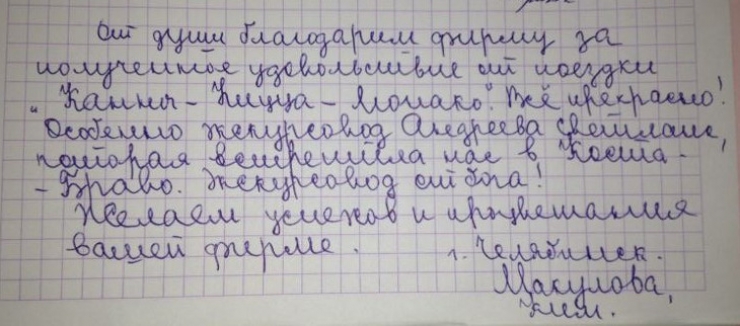 От души благодарим фирму за
полученное удовольствие от поездки
"Канны - Ницца - Монако". Всё прекрасно!
Особенно экскурсовод Андреева Светлана,
которая встретила нас в Коста -
- Браво. Экскурсовод от бога!
Желаем успехов и процветания
вашей фирме. г. Челябинск.
Макулова,
Ким.